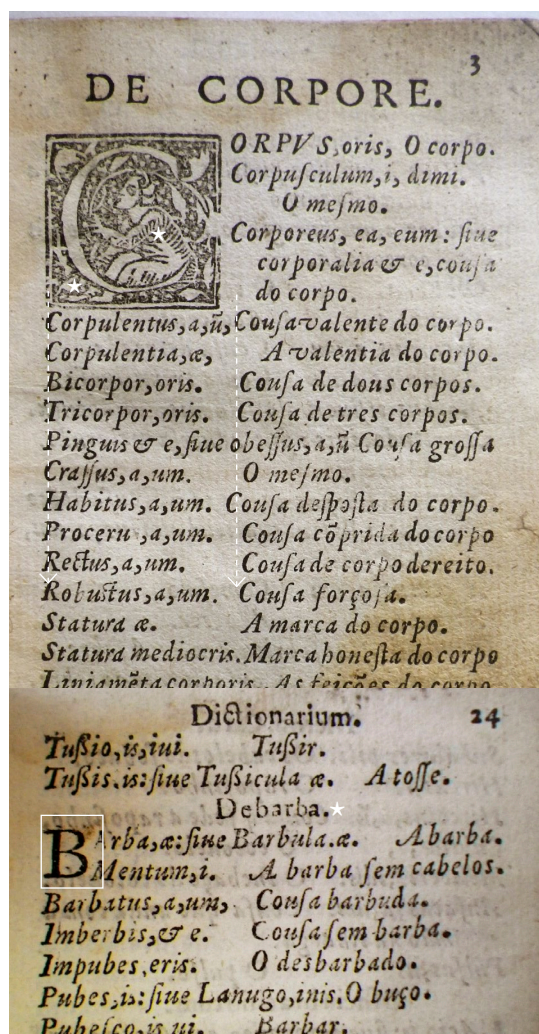 3
DE CORPORE.
CORPVS,oris, O corpo.
Corpuſculum,i, dimi.
O meſmo.
Corporeus, ea, eum: ſiue
corporalia & e,couſa
do corpo.
Corpulentus,a,ũ,Couſa valente do corpo.
Corpulentia,æ, A valentia do corpo.
Bicorpor,oris. Couſa de dous corpos.
Tricorpor,oris. Couſa de tres corpos.
Pinguis & e,ſiue obeſſus,a,ũ Couſa groſſa
Craſſus,a,um. O meſmo.
Habitus,a,um. Couſa deſpoſta do corpo.
Proceru ,a,um. Couſa cõprida do corpo
Rectus,a,um. Couſa de corpo dereito.
Robustus,a,um. Couſa forçoſa.
Statura æ. A marca do corpo.
Statura mediocris. Marca honeſta do corpo
Liniamẽta corporis. As feições do corpo
Dictionarium. 24
Tußio,is,iui. Tußir.
Tußis.is:ſiue Tußicula æ. A toſſe.
De barba.
BArba,æ:ſiue Barbula.æ. A barba.
Mentum,i. A barba ſem cabelos.
Barbatus,a,um, Couſa barbuda.
Imberbis,& e. Couſa ſem barba.
Impubes,eris. O desbarbado.
Pubes,is:ſiue Lanugo,inis.O buço.
Pubeſco,is,ui. Barbar.